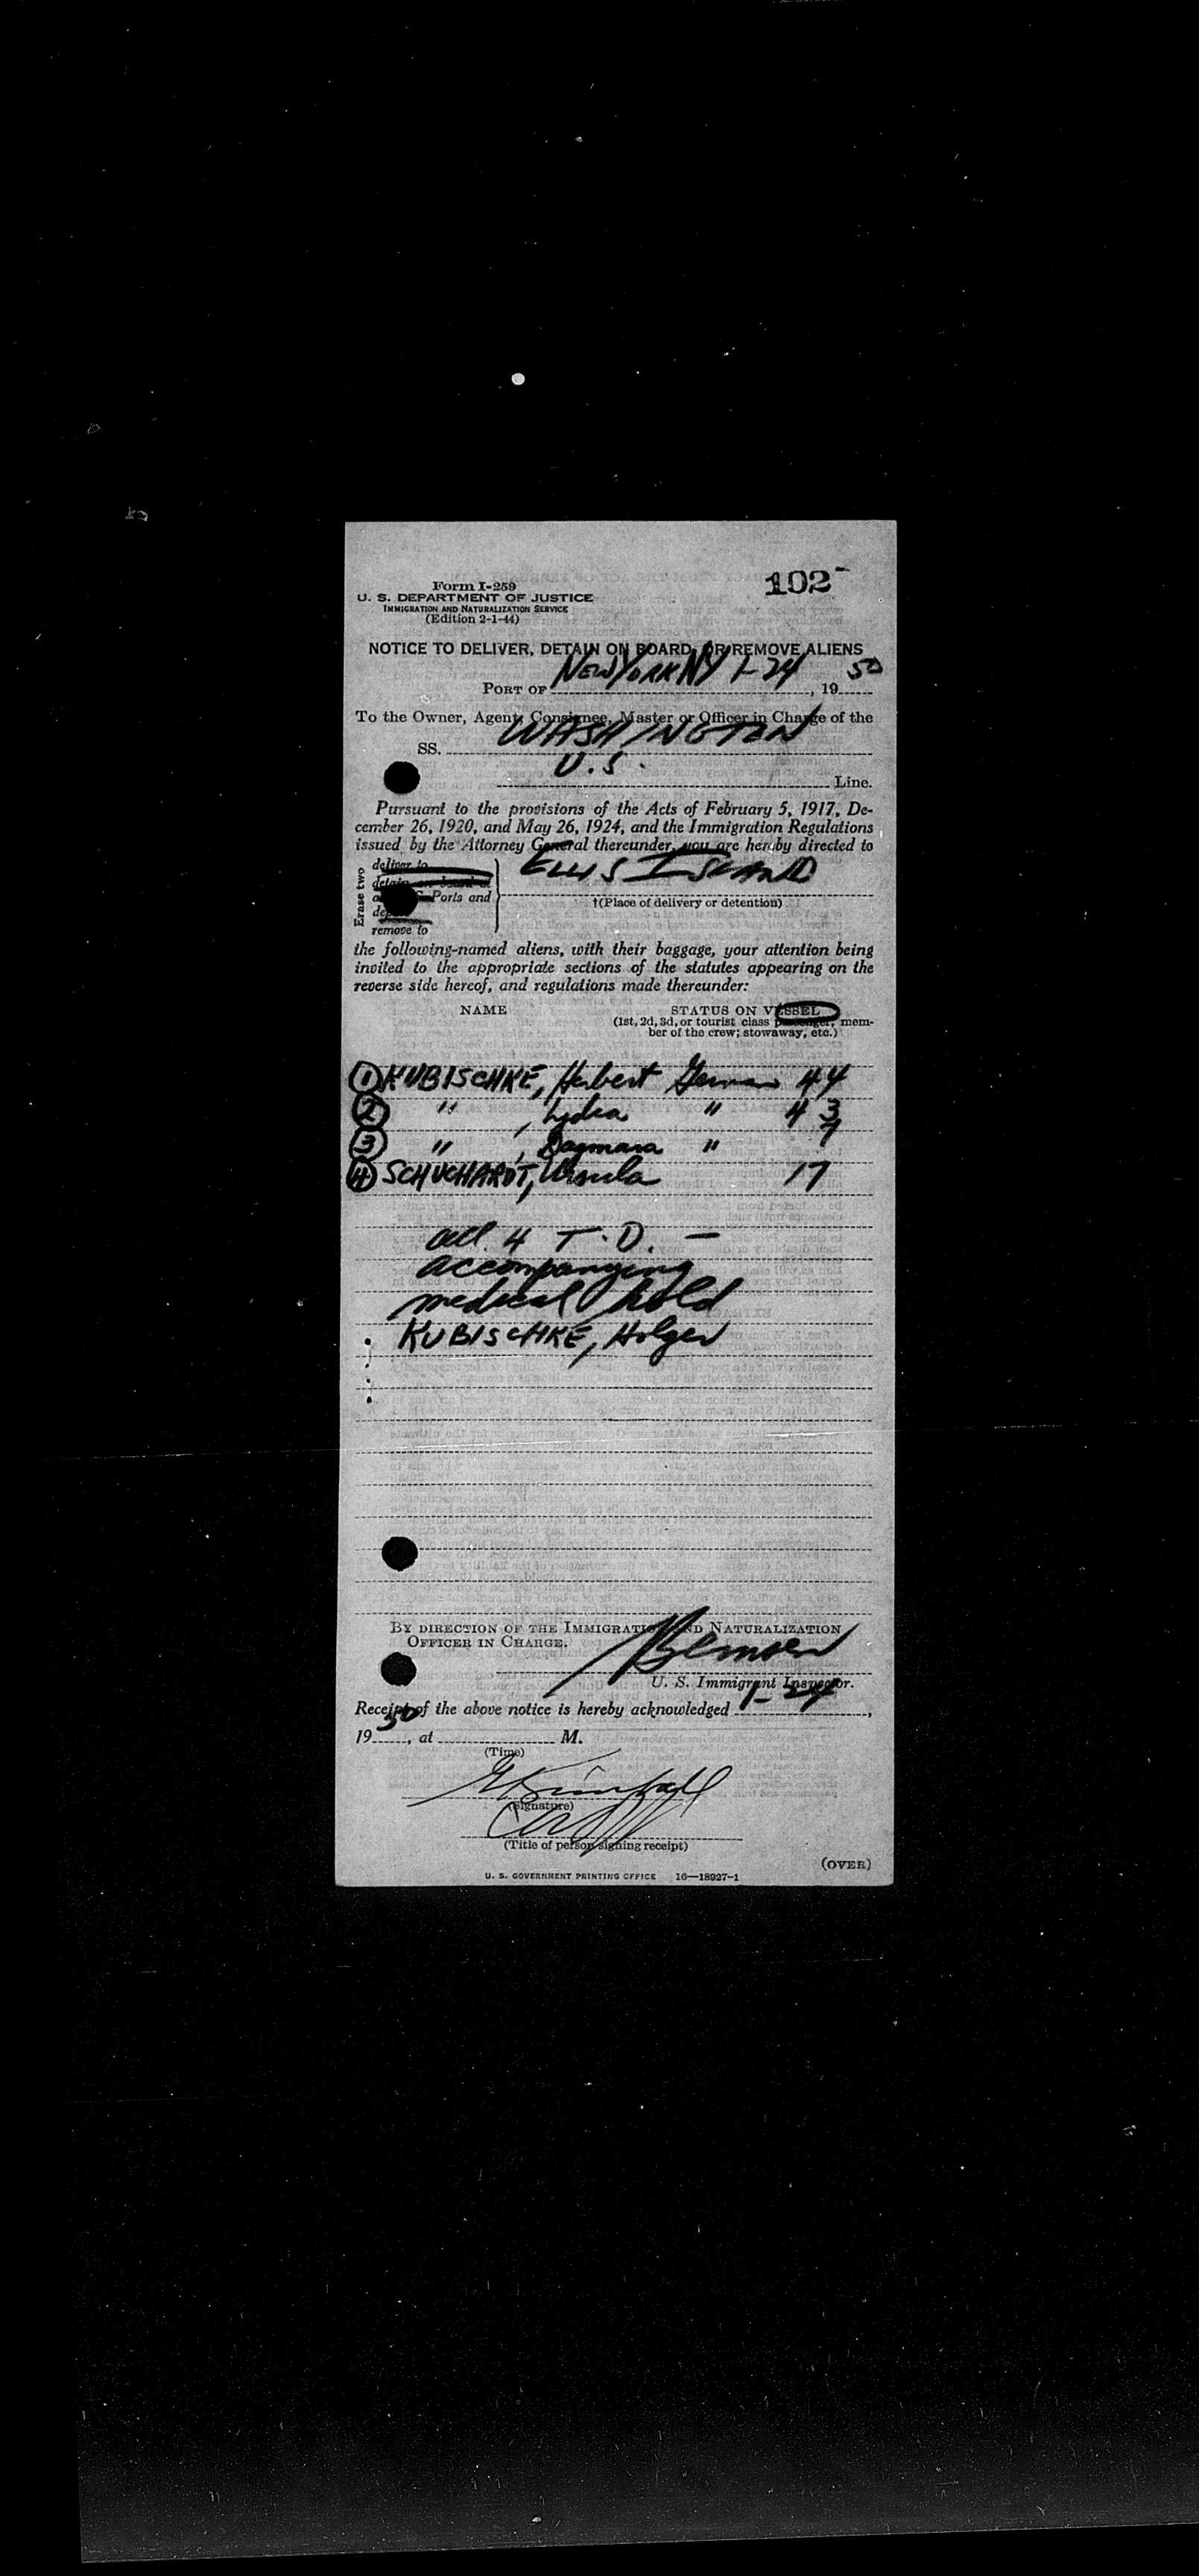 102-
Form I-259
U. S. DEPARTMENT OF JUSTICE
IMMIGRATION AND NATURALIZATION SERVICE
(Edition 2-1-44)
NOTICE TO DELIVER, DETAIN ON BOARD, OR REMOVE ALIENS
PORT OF NEW YORK NY 1-24, 1950
To the Owner, Agent, Consignee, Master or Officer in Charge of the
SS. WASHINGTON
U.S. Line.
Pursuant to the provisions of the Acts of February 5, 1917, De-
cember 26, 1920, and May 26, 1924, and the Immigration Regulations
issued by the Attorney General thereunder, you are hereby directed to
Erase two
deliver to
Ports and
remove to
ELLIS ISLAND
†(Place of delivery or detention)
the following-named aliens, with their baggage, your attention being
invited to the appropriate sections of the statutes appearing on the
reverse side hereof, and regulations made thereunder:
NAME STATUS ON VESSEL
(1st, 2d, 3d, or tourist class passenger; mem-
ber of the crew; stowaway, etc.)
1 KUBISCHKE, Herbert German 44
2 " , Lydia " 43
3 " , Dagmara " 7
4 SCHUCHARDT, Ursula 17
all 4 T.D. -
accompanying
medical hold
KUBISCHKE, Holger
BY DIRECTION OF THE IMMIGRATION AND NATURALIZATION
OFFICER IN CHARGE.
U. S. Immigrant Inspector.
Receipt of the above notice is hereby acknowledged 1-24,
1950, at M.
(Time)
(Signature)
(Title of person signing receipt)
(OVER)
U. S. GOVERNMENT PRINTING OFFICE 16—18927-1